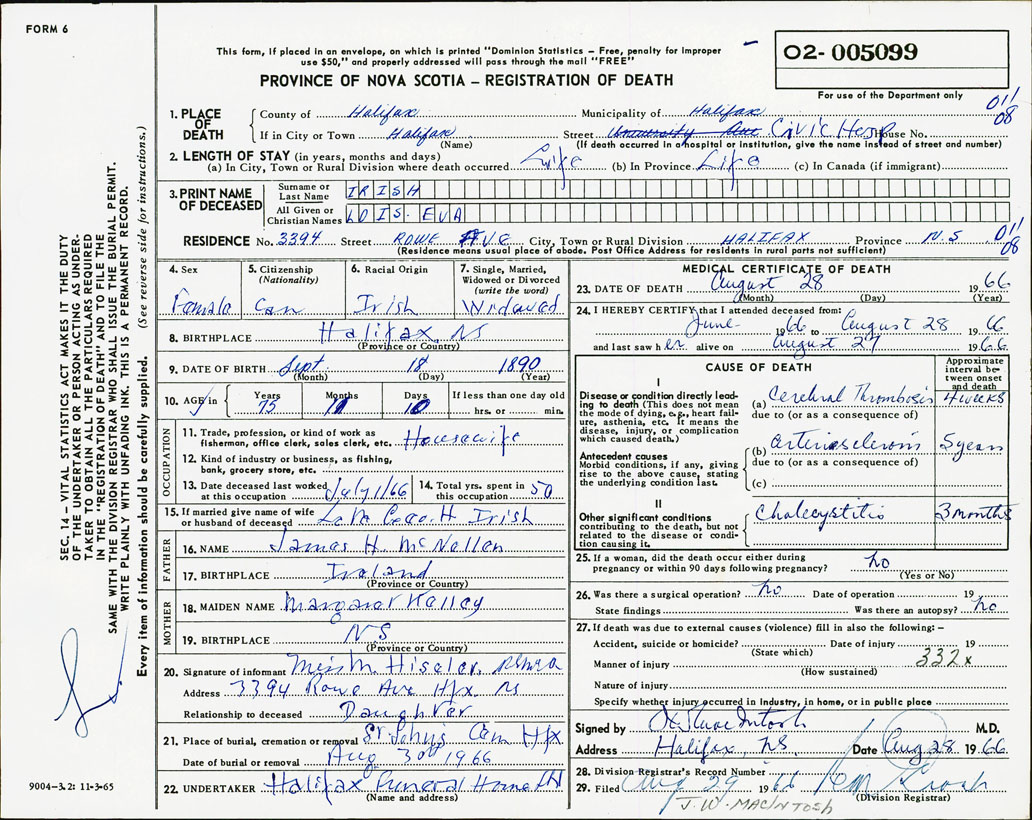 FORM 6
This form, if placed in an envelope, on which is printed "Dominion Statistics – Free, penalty for improper
use $50," and properly addressed will pass through the mail "FREE"
PROVINCE OF NOVA SCOTIA – REGISTRATION OF DEATH
O2- 005099
For use of the Department only
011/08
1. PLACE OF DEATH
County of Halifax Municipality of Halifax
If in City or Town Halifax (Name) Street University Ave Civic Hosp House No.
(If death occurred in a hospital or institution, give the name instead of street and number)
2. LENGTH OF STAY (in years, months and days)
(a) In City, Town or Rural Division where death occurred Life (b) In Province Life (c) In Canada (if immigrant)
3. PRINT NAME OF DECEASED
Surname or Last Name IRISH
All Given or Christian Names LOIS. EVA
RESIDENCE No. 3394 Street ROWE AVE City, Town or Rural Division HALIFAX Province N.S 011/08
(Residence means usual place of abode. Post Office Address for residents in rural parts not sufficient)
4. Sex Female
5. Citizenship (Nationality) Can
6. Racial Origin Irish
7. Single, Married, Widowed or Divorced (write the word) Widowed
8. BIRTHPLACE Halifax NS
(Province or Country)
9. DATE OF BIRTH Sept 18 1890
(Month) (Day) (Year)
10. AGE in Years 75 Months 11 Days 10 If less than one day old hrs. or min.
OCCUPATION
11. Trade, profession, or kind of work as fisherman, office clerk, sales clerk, etc. Housewife
12. Kind of industry or business, as fishing, bank, grocery store, etc.
13. Date deceased last worked at this occupation July 1/66
14. Total yrs. spent in this occupation 50
15. If married give name of wife or husband of deceased Irish
FATHER
16. NAME James H. McNellen
17. BIRTHPLACE Ireland
(Province or Country)
MOTHER
18. MAIDEN NAME Margaret Kelley
19. BIRTHPLACE NS
(Province or Country)
20. Signature of informant M. Hiseler
Address 3394 Rowe Ave Hfx. NS
Relationship to deceased Daughter
21. Place of burial, cremation or removal St Johns Cem Hfx
Date of burial or removal Aug 30th 1966
22. UNDERTAKER Halifax Funeral Home
(Name and address)
MEDICAL CERTIFICATE OF DEATH
23. DATE OF DEATH August 28 1966
(Month) (Day) (Year)
24. I HEREBY CERTIFY that I attended deceased from:
June 1966 to August 28 1966
and last saw her alive on August 27 1966
CAUSE OF DEATH
Approximate interval between onset and death
I
Disease or condition directly leading to death (This does not mean the mode of dying, e.g., heart failure, asthenia, etc. It means the disease, injury, or complication which caused death.)
(a) Cerebral Thrombosis 4 weeks
due to (or as a consequence of)
Antecedent causes
Morbid conditions, if any, giving rise to the above cause, stating the underlying condition last.
(b) arteriosclerosis 5 years
due to (or as a consequence of)
(c)
II
Other significant conditions contributing to the death, but not related to the disease or condition causing it.
Cholecystitis 3 months
25. If a woman, did the death occur either during pregnancy or within 90 days following pregnancy? no
(Yes or No)
26. Was there a surgical operation? no Date of operation 19
State findings Was there an autopsy? no
27. If death was due to external causes (violence) fill in also the following: –
Accident, suicide or homicide? Date of injury 19
(State which)
Manner of injury 332x
(How sustained)
Nature of injury
Specify whether injury occurred in Industry, in home, or in public place
Signed by MacIntosh M.D.
Address Halifax, NS Date Aug 28 1966
28. Division Registrar's Record Number
29. Filed Aug 29 1966
(Division Registrar)
J.W. MACINTOSH
SEC. 14 – VITAL STATISTICS ACT MAKES IT THE DUTY
OF THE UNDERTAKER OR PERSON ACTING AS UNDER-
TAKER TO OBTAIN ALL THE PARTICULARS REQUIRED
IN THE "REGISTRATION OF DEATH" AND TO FILE THE
SAME WITH THE DIVISION REGISTRAR WHO SHALL ISSUE THE BURIAL PERMIT.
WRITE PLAINLY WITH UNFADING INK. THIS IS A PERMANENT RECORD.
Every item of information should be carefully supplied. (See reverse side for instructions.)
9004–3.2: 11–3–65